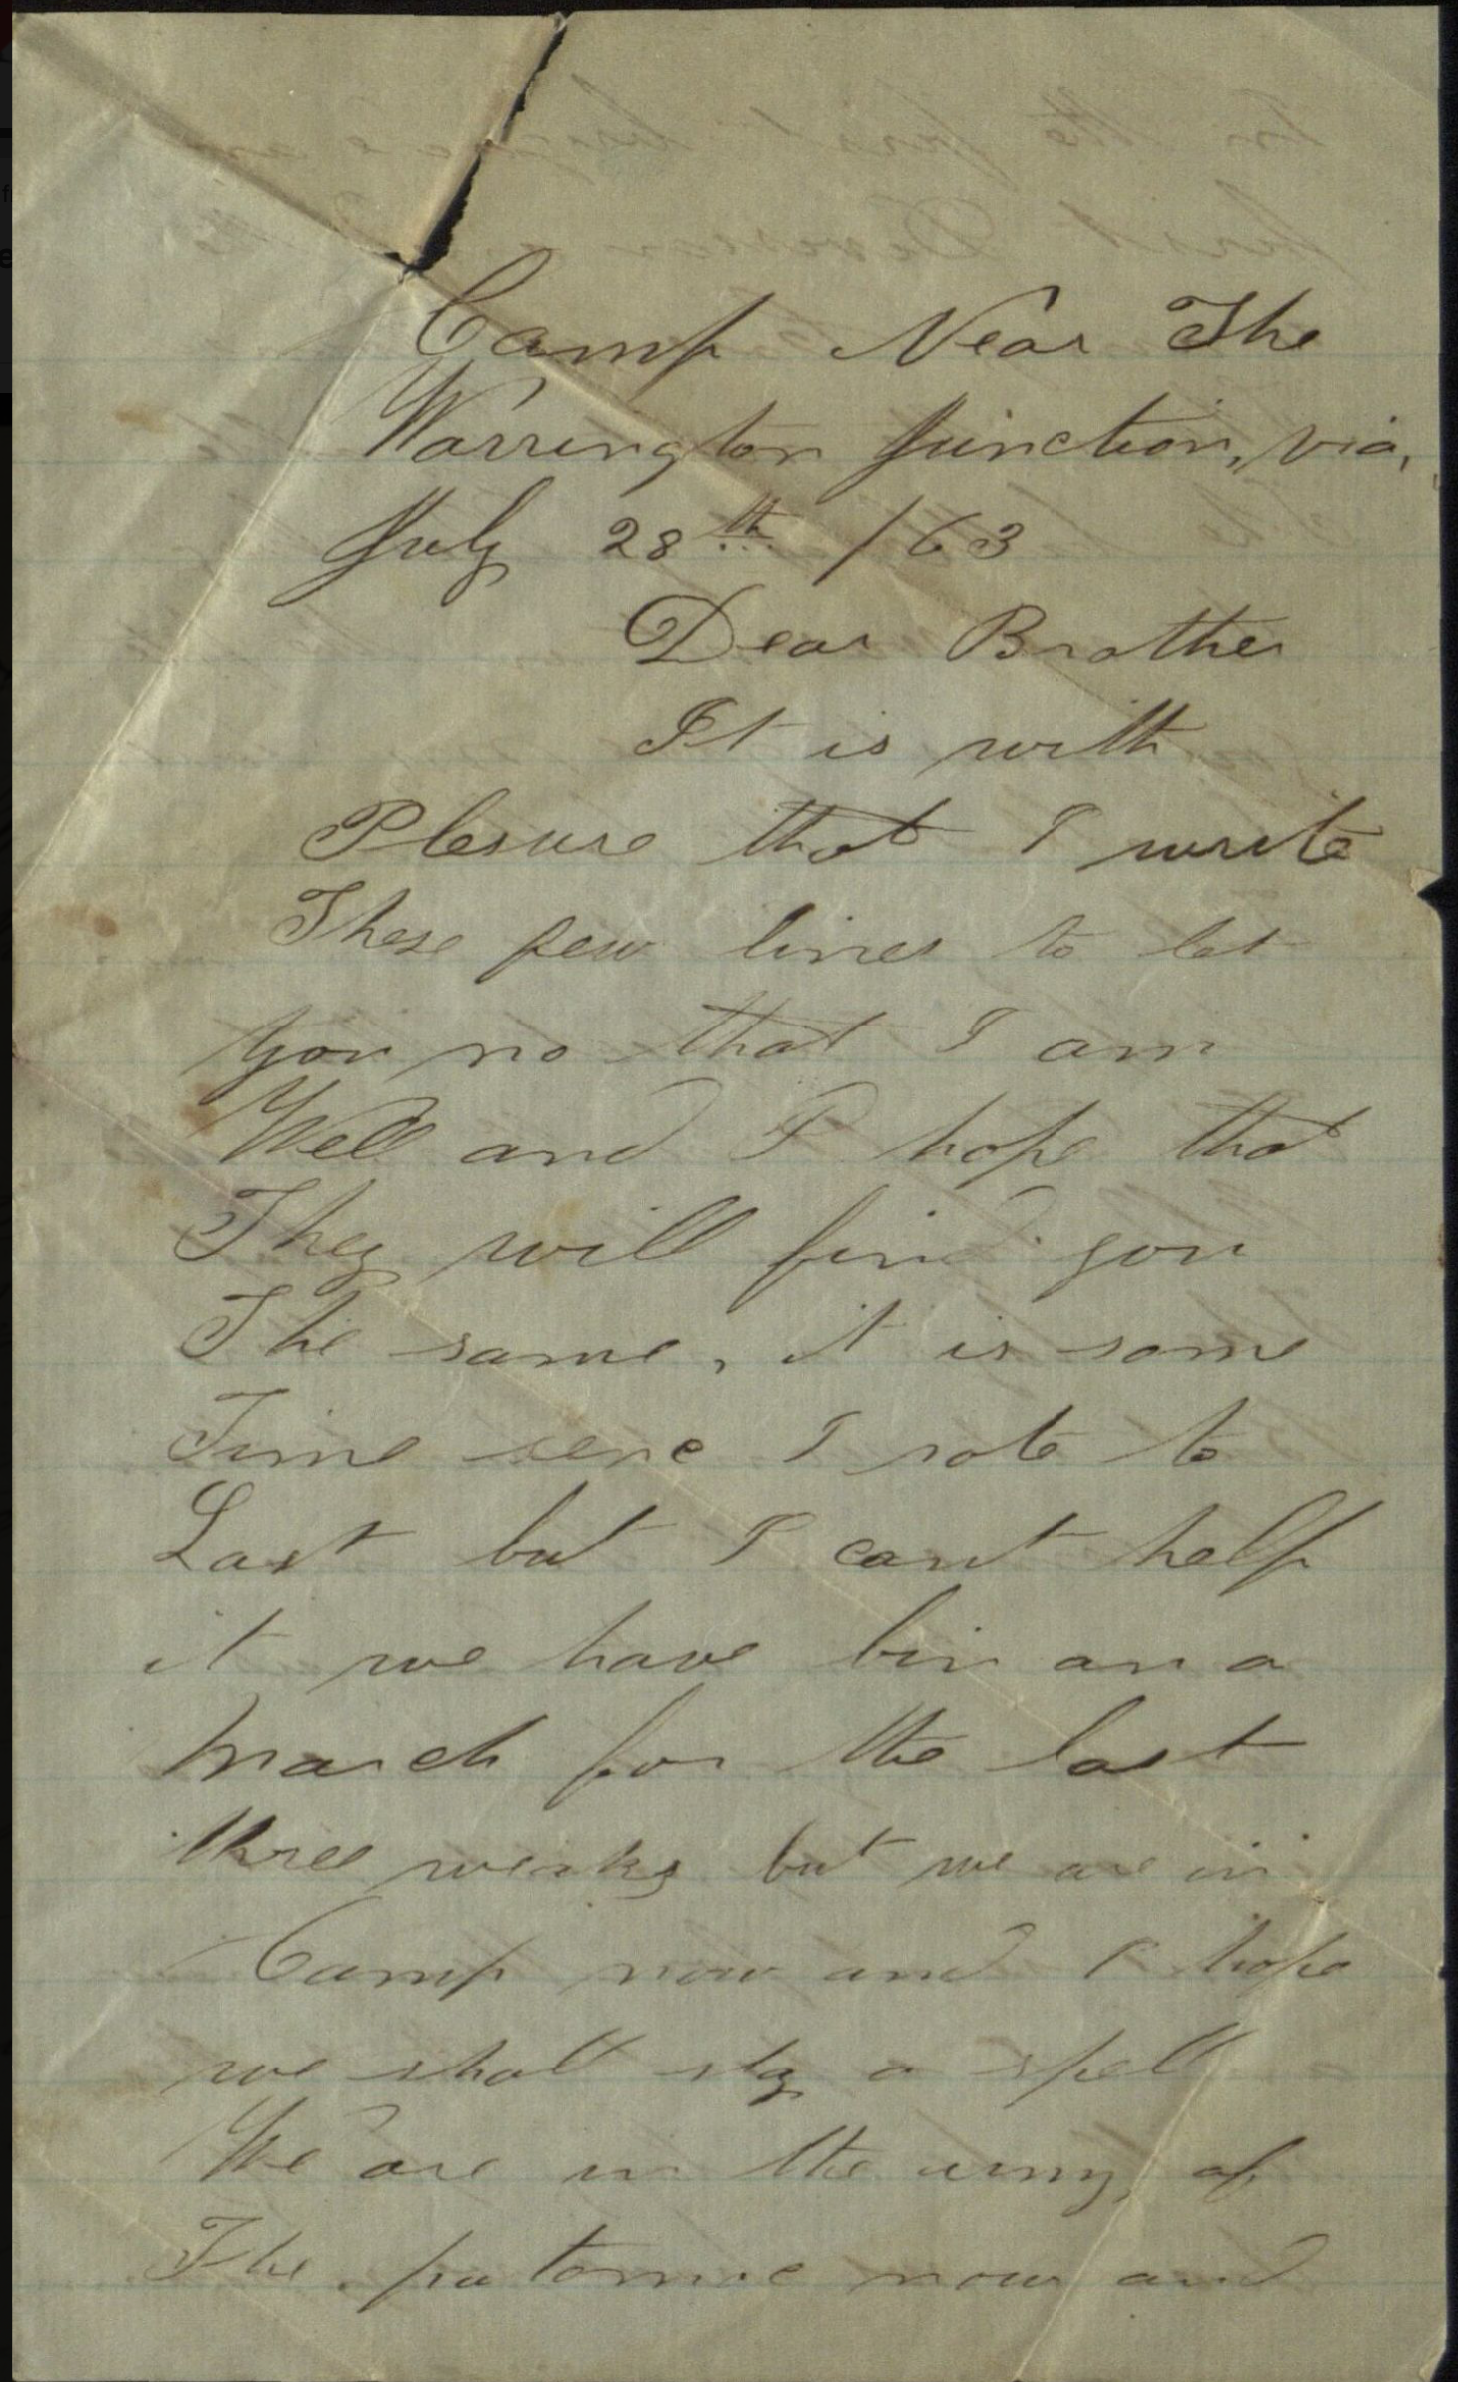 Camp Near The
Warrington Junction, via,
July 28th /63
Dear Brother
It is with
Plesure that I write
These few lines to let
you no that I am
Well and I hope that
They will find you
The same, it is some
Time senc I rote to
Last but I cant help
it we have bin on a
March for the last
three weaks but we are in
Camp now and I hope
we shall sty a spell
We are in the army of
The potomac now and